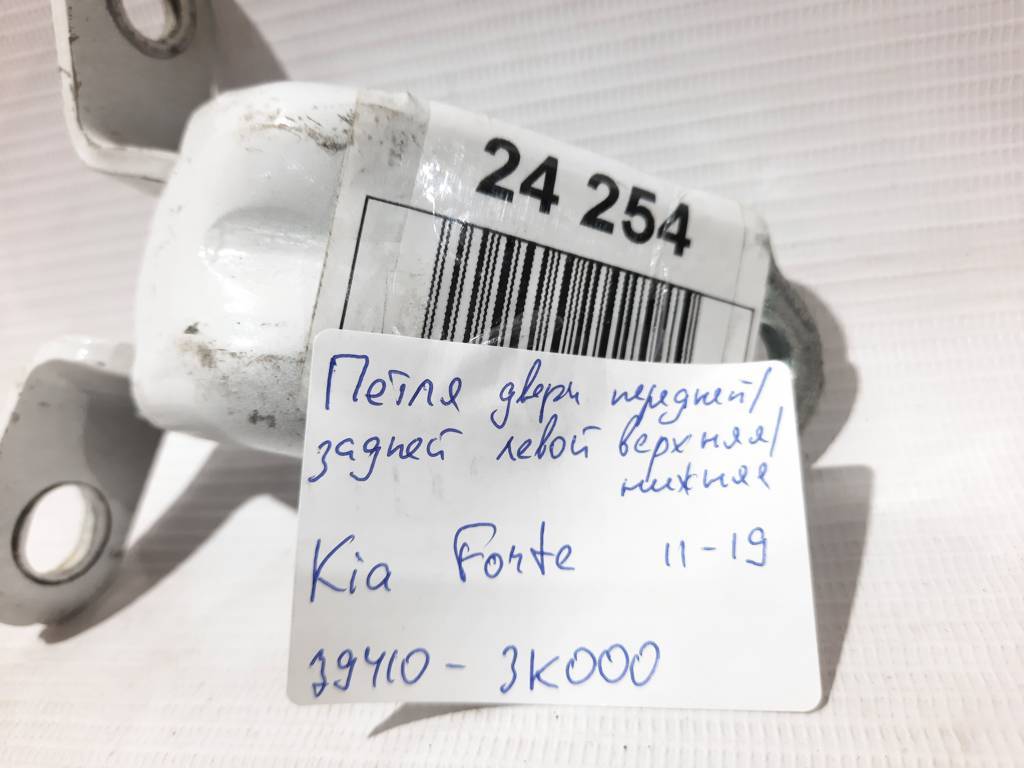 24 254
Петля двери передней/
задней левой верхняя/
нижняя
Kia Forte 11-19
79410 - 3K000